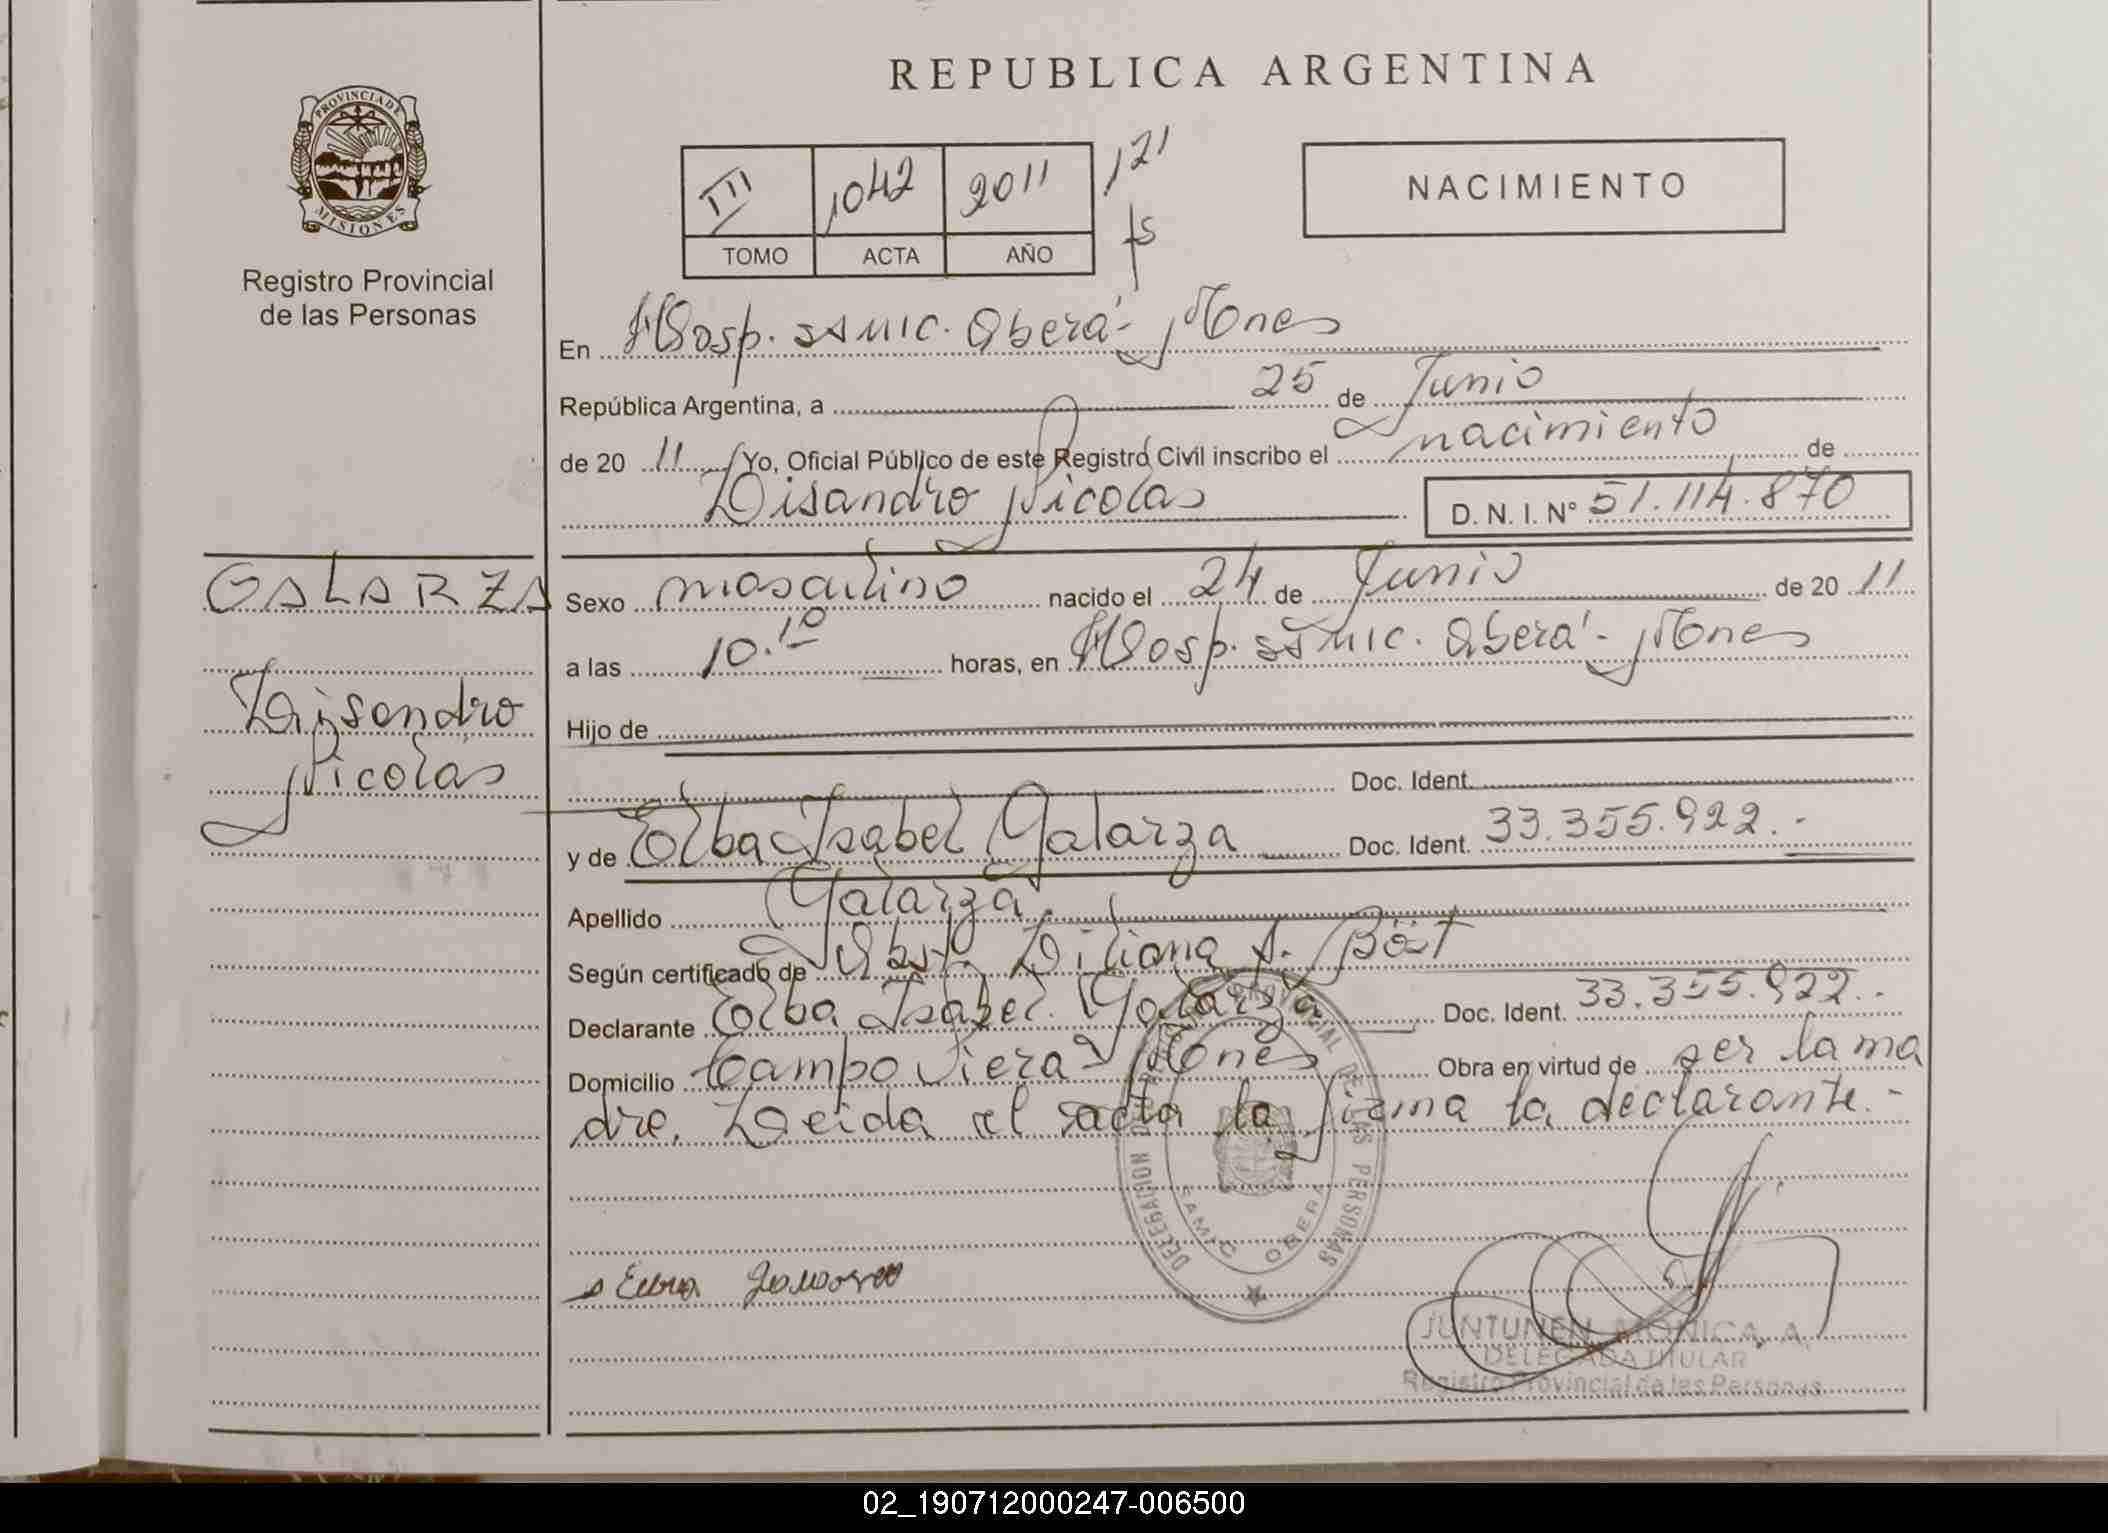 REPUBLICA ARGENTINA
PROVINCIA DE
MISIONES
Registro Provincial
de las Personas
III 1042 2011 121
TOMO ACTA AÑO fs
NACIMIENTO
En Hosp. SAMIC. Oberá - Mnes
República Argentina, a 25 de Junio
de 20 11 Yo, Oficial Público de este Registro Civil inscribo el nacimiento de
Lisandro Nicolás
D. N. I. N° 51.114.870
GALARZA
Lisandro
Nicolás
Sexo masculino nacido el 24 de Junio de 20 11
a las 10.10 horas, en Hosp. SAMIC. Oberá - Mnes
Hijo de
Doc. Ident.
y de Elba Isabel Galarza Doc. Ident. 33.355.922.-
Apellido Galarza
Según certificado de Obst. Liliana A.
Declarante Elba Isabel Galarza Doc. Ident. 33.355.922.-
Domicilio Campo Viera - Mnes Obra en virtud de ser la ma
dre. Leida el acta la firma la declarante.-
DELEGACION DEL REGISTRO PROVINCIAL DE LAS PERSONAS
SAMIC OBERA
JUNTUNEN MONICA A.
DELEGADA TITULAR
Registro Provincial de las Personas
02_190712000247-006500